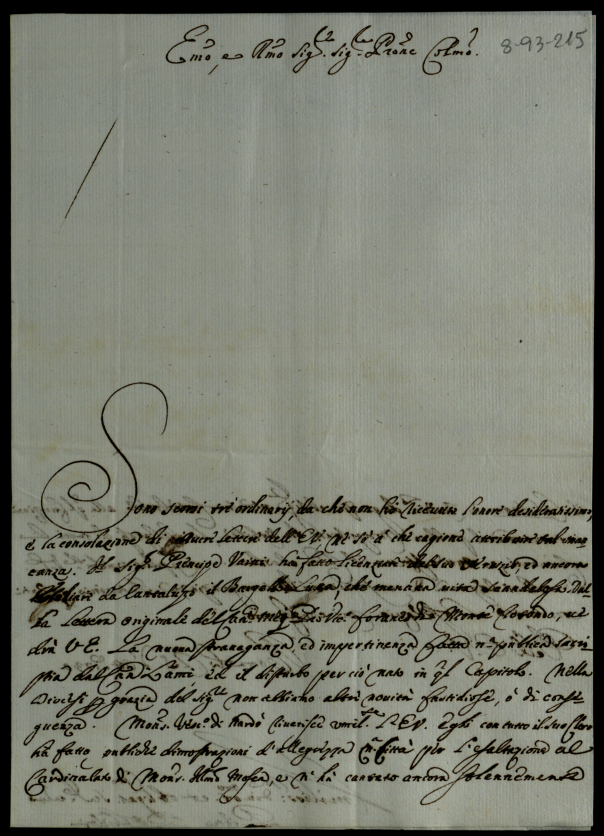 Emo, e Rmo Sigr. Sigr. Prone Colmo.
8-93-215
Sono scorsi tré ordinarij, da che non hò ricevuto l'onore desideratissimo,
e la consolazione di lettere dell'EV. né sò à che cagione attribuire tal man-
canza. Il Sigr. Principe Vaini hà fatto licenziare dal ed ancora
da Cantalupo il Bargello Luca, che menava vita scandalosa. Dal-
la Lettera originale del Vico. foraneo di Monte Rotondo, ve-
drà V E. La nuova stravaganza, ed impertinenza fatta in publica Sacri-
stia dal ed il disturbo perciò nato in ql Capitolo. Nella
Diocesi p grazia del Sigre non abbiamo altre novità fastidiose, ò di conse-
guenza. Monsr. Vesco. di Nardò riverisce umilte. l'EV. Egli con tutto il suo Clero
hà fatto publiche dimostrazioni d'Allegrezza in Città per l'esaltazione al
Cardinalato di Monsr. Illmo Mosca, e n'hà cantato ancora solennemente